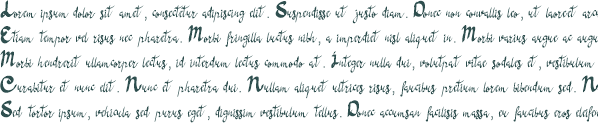 Lorem ipsum dolor sit amet, consectetur adipiscing elit. Suspendisse ut justo diam. Donec non convallis leo, ut laoreet arcu
Etiam tempor vel risus nec pharetra. Morbi fringilla luctus nibh, a imperdiet nisl aliquet in. Morbi varius augue ac augue
Morbi hendrerit ullamcorper lectus, id interdum lectus commodo at. Integer nulla dui, volutpat vitae sodales et, vestibulum
Curabitur et nunc elit. Nunc et pharetra dui. Nullam aliquet ultrices risus, faucibus pretium lorem bibendum sed. N
Sed tortor ipsum, vehicula sed purus eget, dignissim vestibulum tellus. Donec accumsan facilisis massa, eu faucibus eros eleif